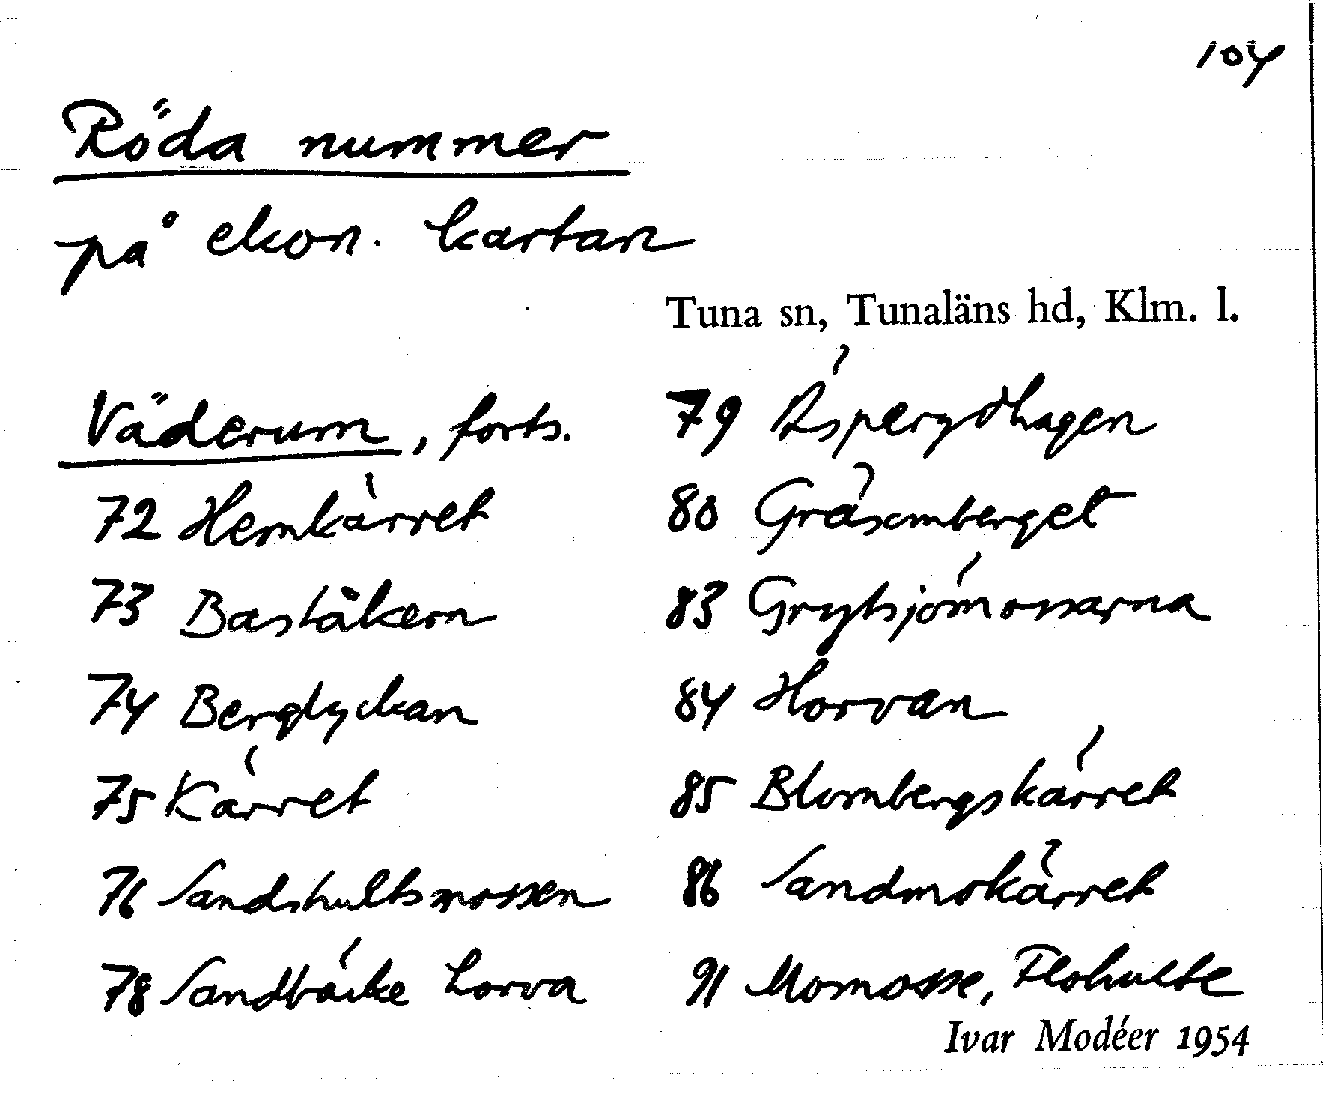 104
Röda nummer
på ekon. kartan
Tuna sn, Tunaläns hd, Klm. l.
Väderum, forts.
72 Hemkärret
73 Bastäkern
74 Berglyckan
75 Kärret
76 Sandshultsmossen
78 Sandbäcke horva
79 Äsperydhagen
80 Gräsomberget
83 Grytsjömossarna
84 Horvan
85 Blombergskärret
86 Sandmokärret
91 Momosse, Flohulte
Ivar Modéer 1954